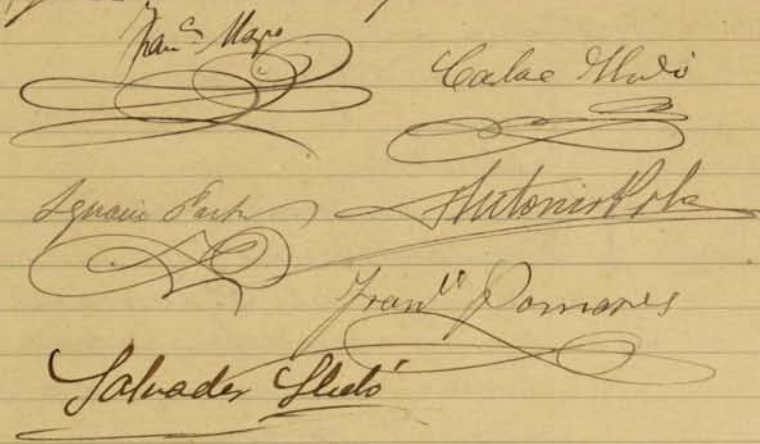 Fran.co Mayo
Carlos Lludó
Ignacio
Antonio Pola
Fran.co Pomares
Salvador Lludó